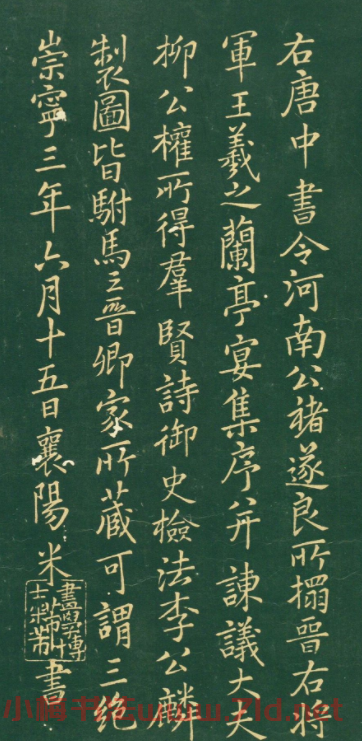 右唐中書令河南公褚遂良所搨晉右將
軍王羲之蘭亭宴集序并諫議大夫
柳公權所得羣賢詩御史檢法李公麟
製圖皆駙馬王晉卿家所藏可謂三絕
崇寧三年六月十五日襄陽米芾書
畫學博
士米芾
www.7ld.net